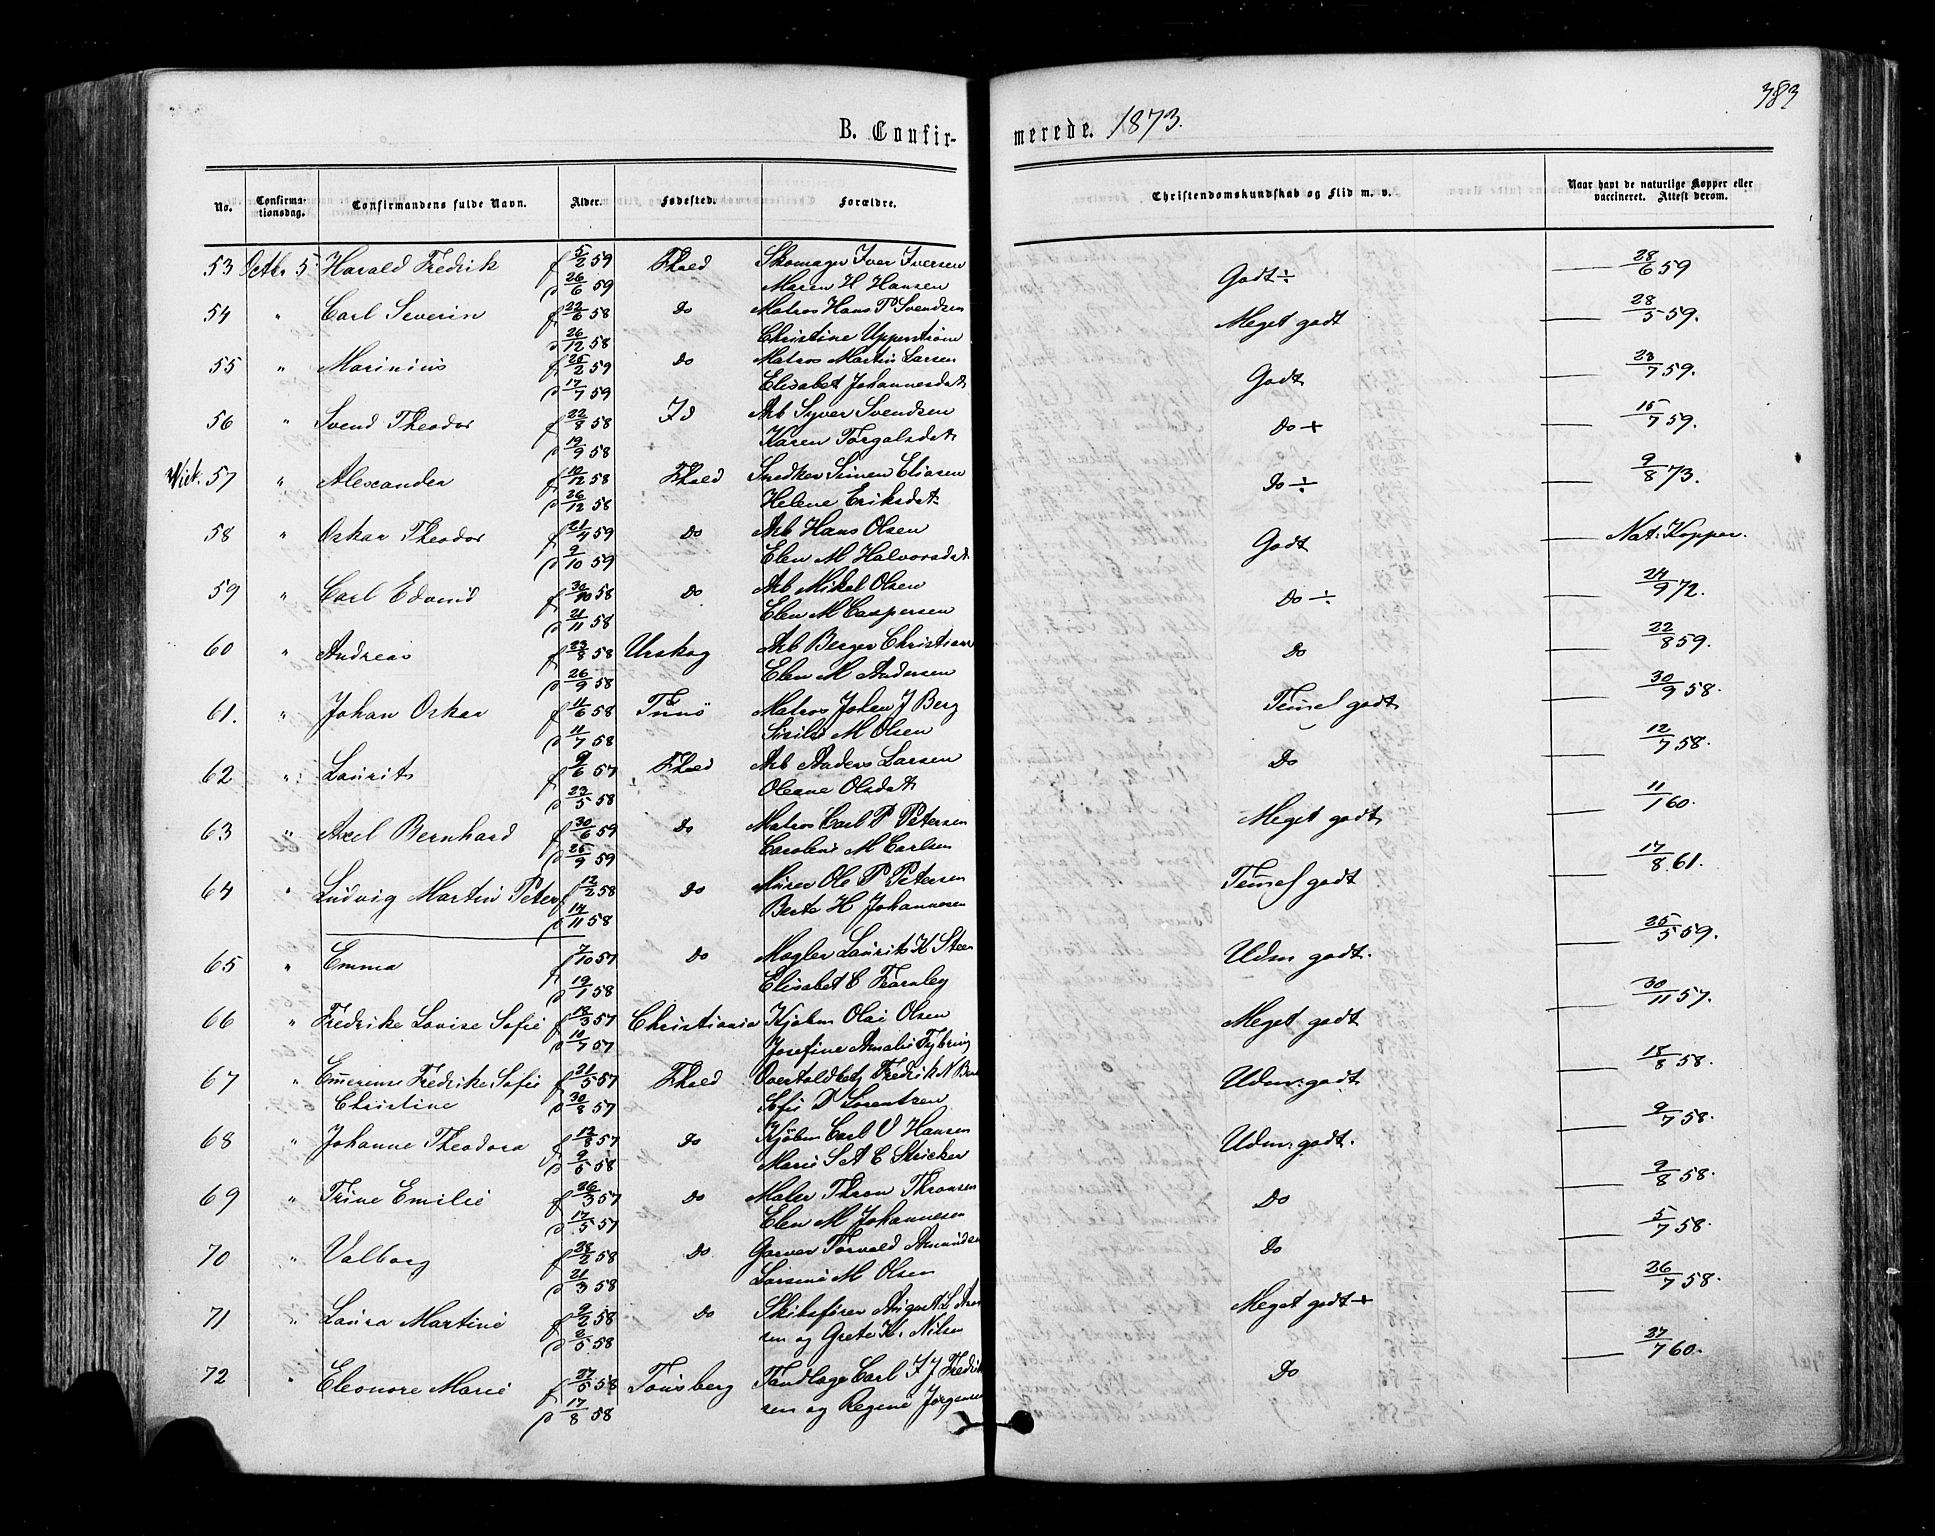 383
B. Confirmerede. 1873.
No. Confirmationsdag. Confirmandens fulde Navn. Alder. Fødested. Forældre. Christendomskundskab og Flid m. v. Naar havt de naturlige Kopper eller vaccineret. Attest derom.
53 Octbr 5. Harald Fredrik f 5/2 59 Fhald Skomager Iver Iversen Godt ÷ 28/6 59
p 26/6 59 Maren H Hansen
54 " Carl Severin f 22/6 58 Do Matros Hans P Svendsen Meget godt 28/5 59.
p 26/12 58 Christine Uppström
55 " Marinius f 25/2 59 Do Matros Martin Larsen Godt 23/7 59.
p 17/7 59 Elisabet Johannesdat
56 " Svend Theodor f 22/8 58 Id Arb Syver Svendsen Do + 15/7 59.
p 19/9 58 Karen Torgalsdat
Wict. 57 " Alexander f 10/12 58 Fhald Snedker Simen Eliasen Do ÷ 9/8 73.
p 26/12 58 Helene Eriksdat
58 " Oskar Theodor f 21/4 59 Do Arb Hans Olsen Godt Nat: Kopper.
p 9/10 59 Elen M Halvorsdat
59 " Carl Edvind f 30/10 58 Do Arb Mikal Olsen Do ÷ 24/9 72.
p 21/11 58 Elen M Caspersen
60 " Andreas f 23/8 58 Urskog Arb Berger Christians Do 22/8 59.
p 26/9 58 Elen M Andersen
61. " Johan Oskar f 11/6 58 Matros Johan J Berg Temel godt 30/9 58.
p 11/7 58 M Olsen
62 " Laurits f 9/6 57 Fhald Arb Anders Larsen Do 12/7 58.
p 23/5 58 Oleane Olsdat
63 " Axel Bernhard f 30/6 59 Do Matros Carl P Petersen Meget godt 11/1 60.
p 25/9 59 Caroline M Carlsen
64 " Ludvig Martin Peter f 12/2 58 Do Murer Ole P Petersen Temel godt 17/8 61.
p 14/11 58 Berte H Johannesen
65 " Emma f 7/10 57 Do Mægler Laurits K Steen Udm godt. 25/5 59.
p 19/1 58 Elisabet C Fearnley
66 " Fredrike Lovise Sofie f 14/3 57 Christiania Kjøbm Olai Olsen Meget godt 30/11 57.
p 10/7 57 Josefine Amalie Tybring
67 " Emerense Fredrike Sofie f 21/5 57 Fhald Overtoldbetj Fredrik N Udm: godt 18/8 58.
Christine p 30/8 57 Sofie D Lorentzen
68 " Johanne Theodora f 12/8 57 Do Kjøbm Carl V Hansen Udm: godt. 9/7 58.
p 9/5 58 Marie S A C Stricker
69 " Trine Emilie f 26/3 57 Do Maler Thron Thronsen Do 9/8 58.
p 17/5 57 Elen M Johannesen
70 " Valborg f 28/2 58 Do Garver Torvald Amundsen Do 5/7 58.
p 21/3 58 Larsene M Olsen
71 " Laura Martine f 9/2 58 Do Skibsfører August L Meget godt + 26/7 58.
p 2/5 58 sen og Grete K. Nilsen
72 " Eleonore Marie f 27/5 58 Tønsberg Tandlæge Carl F J Fredrik Do 27/7 60.
p 17/8 58 sen og Regine Jørgensen